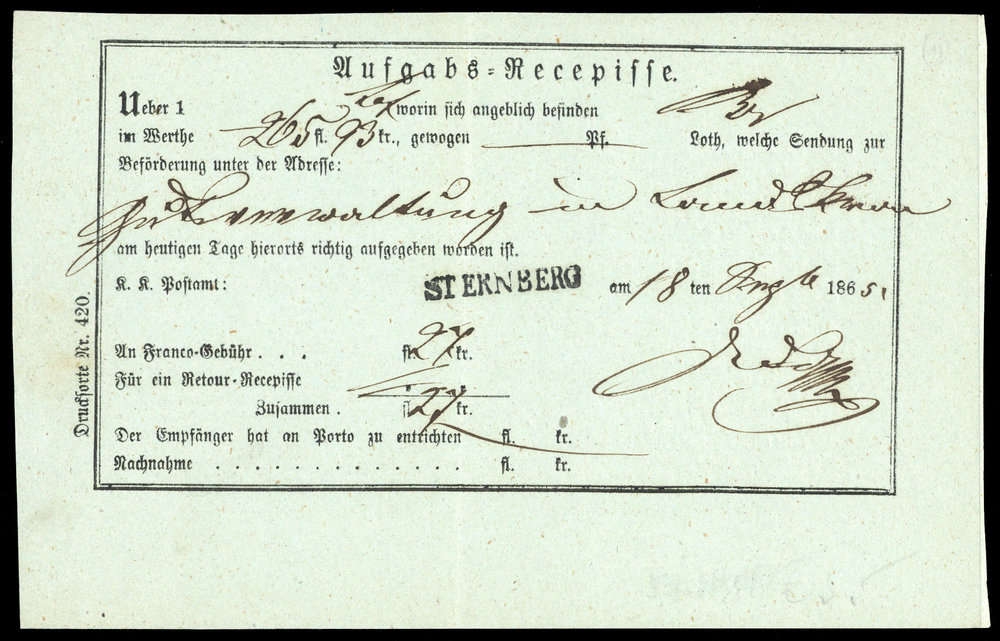 Aufgabs-Recepisse.
Ueber 1 worin sich angeblich befinden
im Werthe 265 fl. 93 kr., gewogen Pf. Loth, welche Sendung zur
Beförderung unter der Adresse:
Gutsverwaltung in Landskron
am heutigen Tage hierorts richtig aufgegeben worden ist.
K. K. Postamt: STERNBERG am 18 ten 1865.
An Franco-Gebühr . . . fl. 27 kr.
Für ein Retour-Recepisse
Zusammen . fl. 27 kr.
Der Empfänger hat an Porto zu entrichten fl. kr.
Nachnahme . . . . . . . . . . . . . . fl. kr.
Drucksorte Nr. 420.